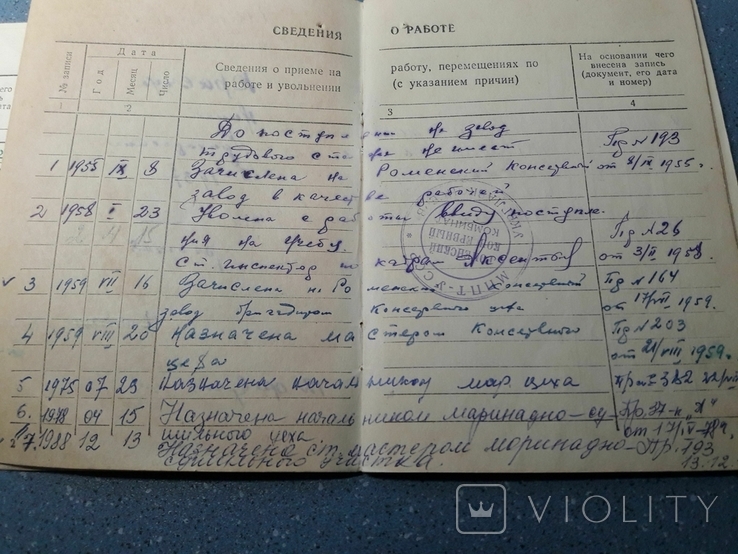 СВЕДЕНИЯ О РАБОТЕ
№ записи
Дата
Год
Месяц
Число
Сведения о приеме на работу, перемещениях по
работе и увольнении (с указанием причин)
На основании чего
внесена запись
(документ, его дата
и номер)
2 3 4
До поступления на завод
трудового стажа не имеет
1 1955 IX 8 Зачислена на Роменский Консервный
завод в качестве рабочей
Пр №193
от 8/IX 1955г.
2 1958 I 23 Уволена с работы ввиду поступле-
ния на учебу
Пр №26
от 3/II 1958.
ст. инспектор по кадрам
3 1959 VII 16 Зачислена на Роменский Консервный
завод бригадиром Консервного цеха
Пр №164
от 17/VII 1959.
4 1959 VIII 20 Назначена мастером Консервного
цеха
Пр №203
от 21/VIII 1959.
5 1975 07 23 Назначена начальником мар. цеха Пр № 382
6. 1978 04 15 Назначена начальником маринадно-су-
шильного цеха.
7. 1988 12 13 Назначена ст. мастером моринадно-
сушильного участка.
Пр. 793
13.12
VIOLITY